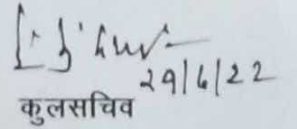 29/6/22
कुलसचिव